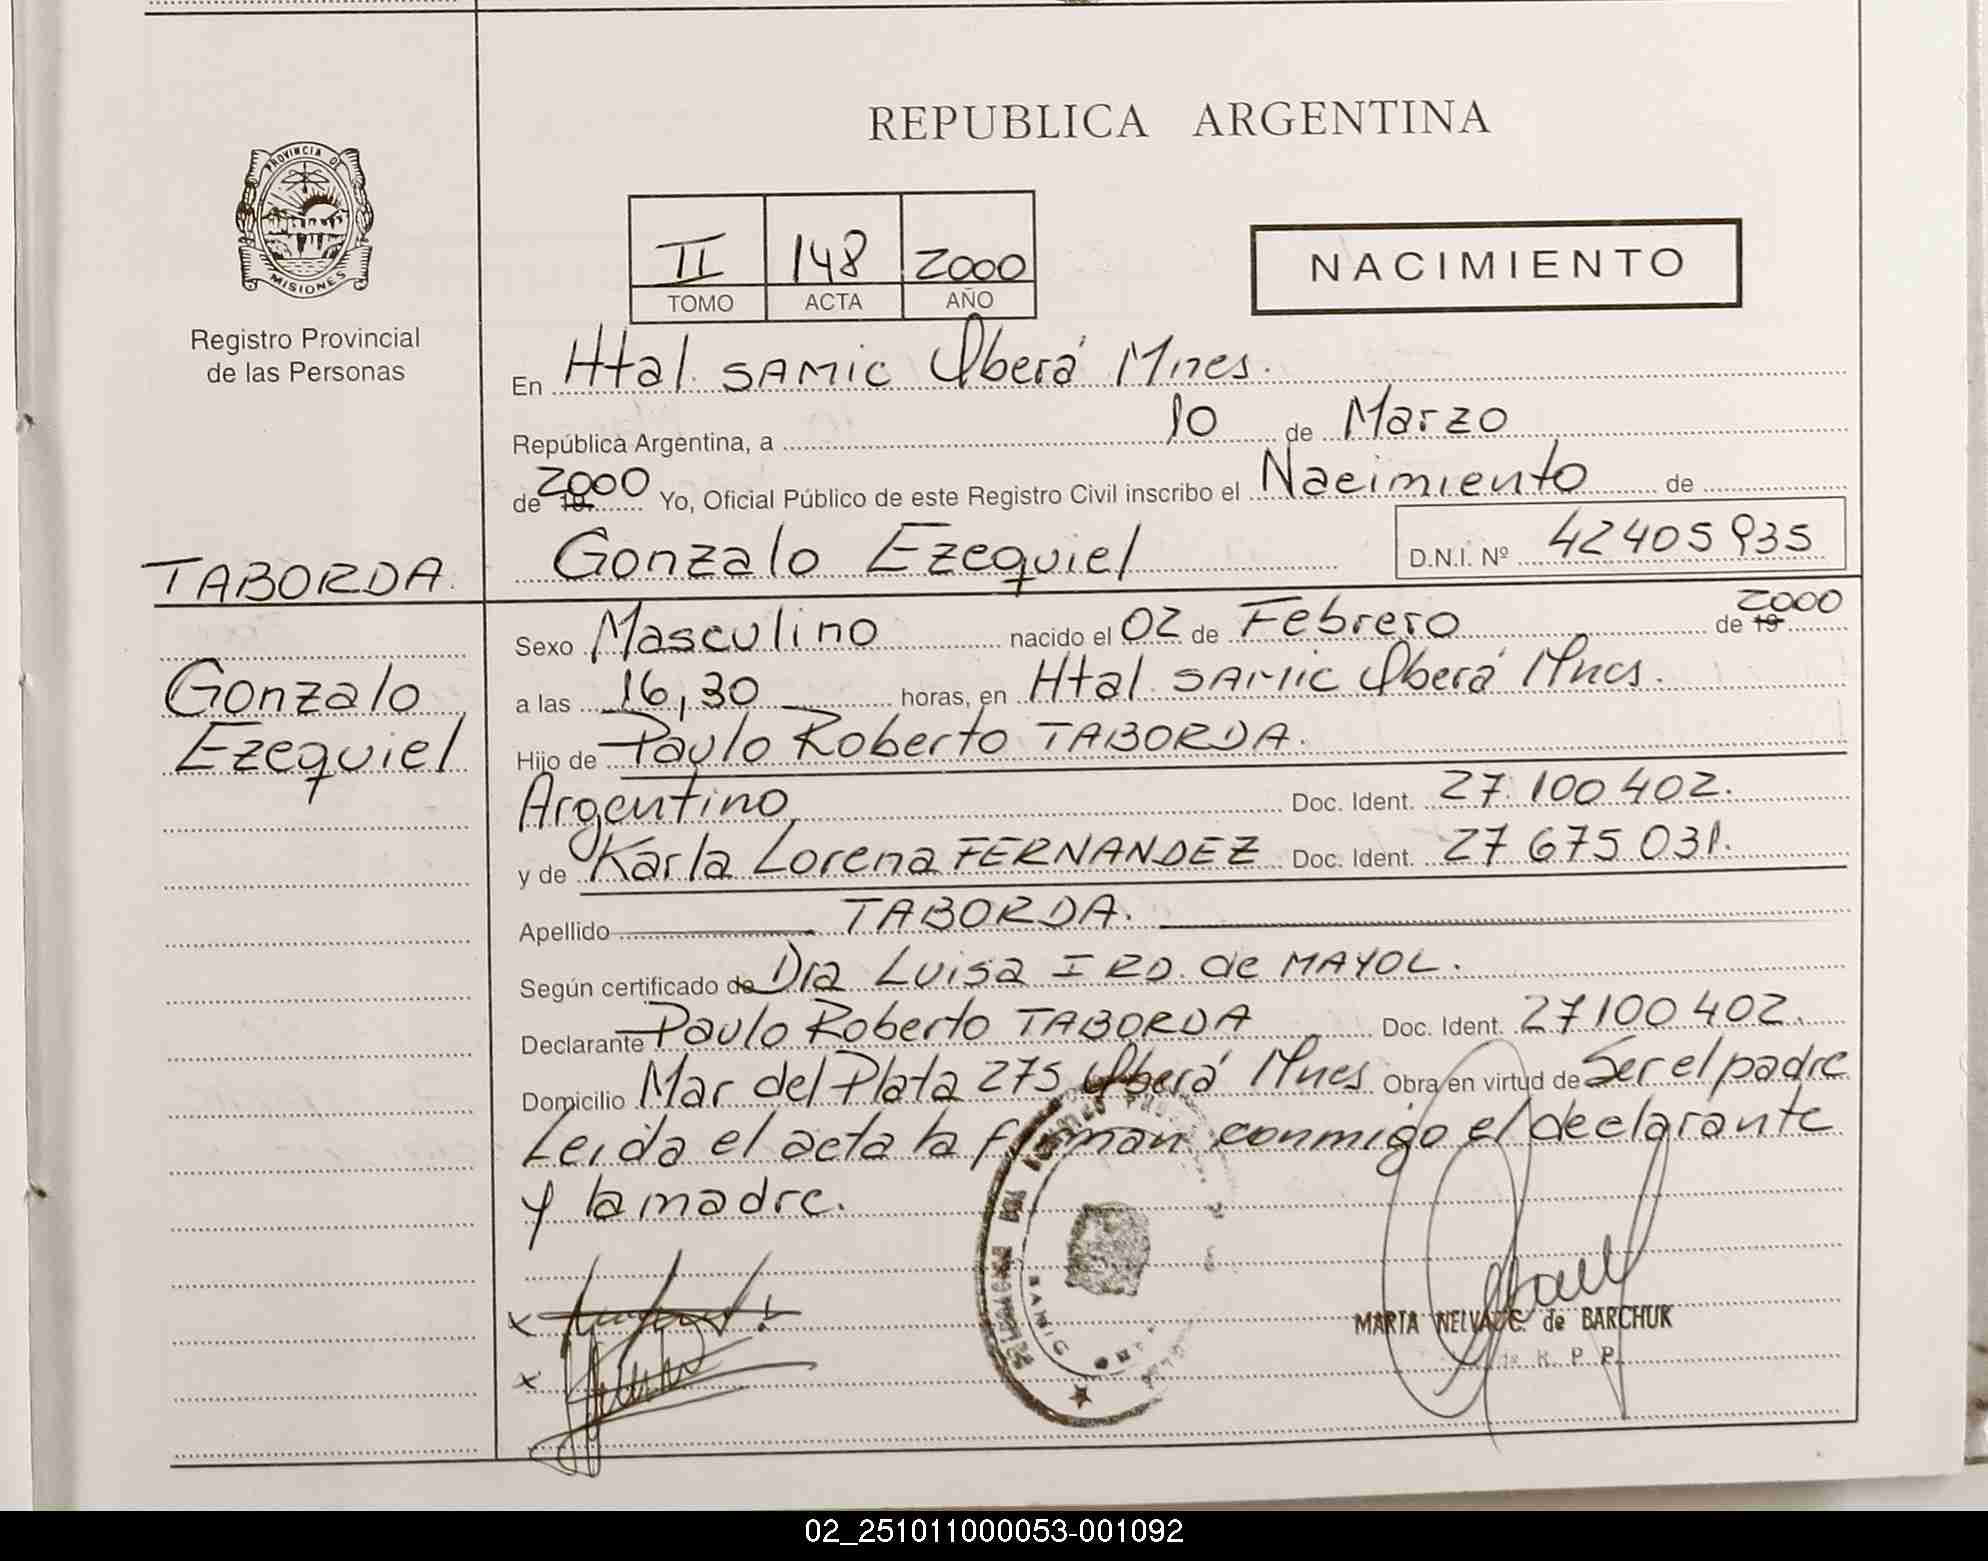 REPUBLICA ARGENTINA
PROVINCIA DE
MISIONES
Registro Provincial
de las Personas
II 148 2000
TOMO ACTA AÑO
NACIMIENTO
En Htal. SAMIC Oberá Mnes.
República Argentina, a 10 de Marzo
de 2000 19 Yo, Oficial Público de este Registro Civil inscribo el Nacimiento de
TABORDA.
Gonzalo Ezequiel D.N.I. Nº 42405935
Gonzalo
Ezequiel
Sexo Masculino nacido el 02 de Febrero de 19 2000
a las 16,30 horas, en Htal. SAMIC Oberá Mnes.
Hijo de Paulo Roberto TABORDA.
Argentino Doc. Ident. 27.100 402.
y de Karla Lorena FERNANDEZ Doc. Ident. 27 675 031.
Apellido TABORDA.
Según certificado de Dra Luisa I RD. de MAYOL.
Declarante Paulo Roberto TABORDA Doc. Ident. 27100 402.
Domicilio Mar del Plata 275 Oberá Mnes Obra en virtud de Ser el padre
Leida el acta la firman conmigo el declarante
y la madre.
x
x
SAMIC
MARTA NELVA C. de BARCHUK
R. P. P.
02_251011000053-001092